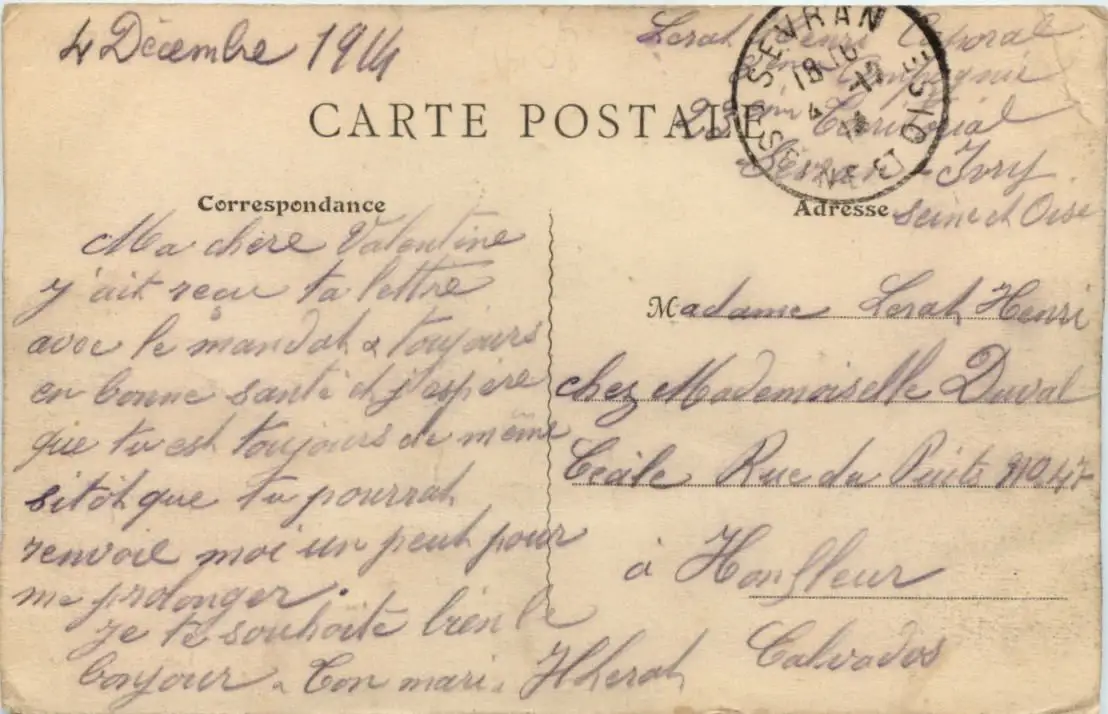 4 Décembre 1914
Lerat Henri Caporal
Compagnie
23ème Territorial
Sevran-Ivry
Seine et Oise
SEVRAN
SEINE ET OISE
18 15
4 -12
14
CARTE POSTALE
Correspondance
Adresse
Ma chère Valentine
j'ait reçu ta lettre
avec le mandat & toujours
en bonne santé et j'espère
que tu est toujours de même
sitôt que tu pourrat
renvoie moi un peut pour
me prolonger.
Je te souhaite bien le
bonjour. Ton mari. HLerat
Madame Lerat Henri
chez Mademoiselle Duval
Cécile Rue du Puits No 47
à Honfleur
Calvados